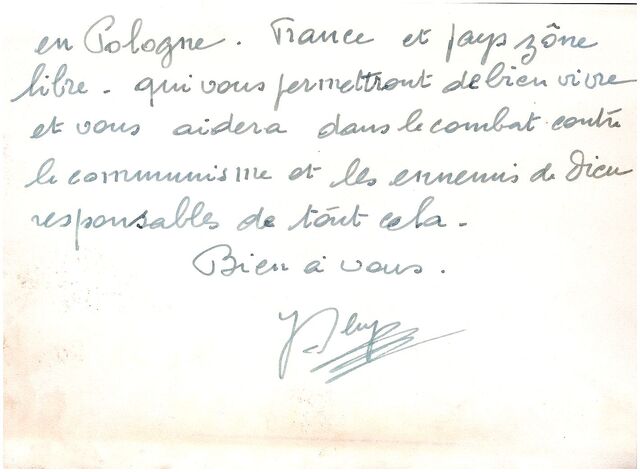 en Pologne. France et pays zône
libre - qui vous permettront de bien vivre
et vous aidera dans le combat contre
le communisme et les ennemis de Dieu
responsables de tout cela -
Bien à vous.